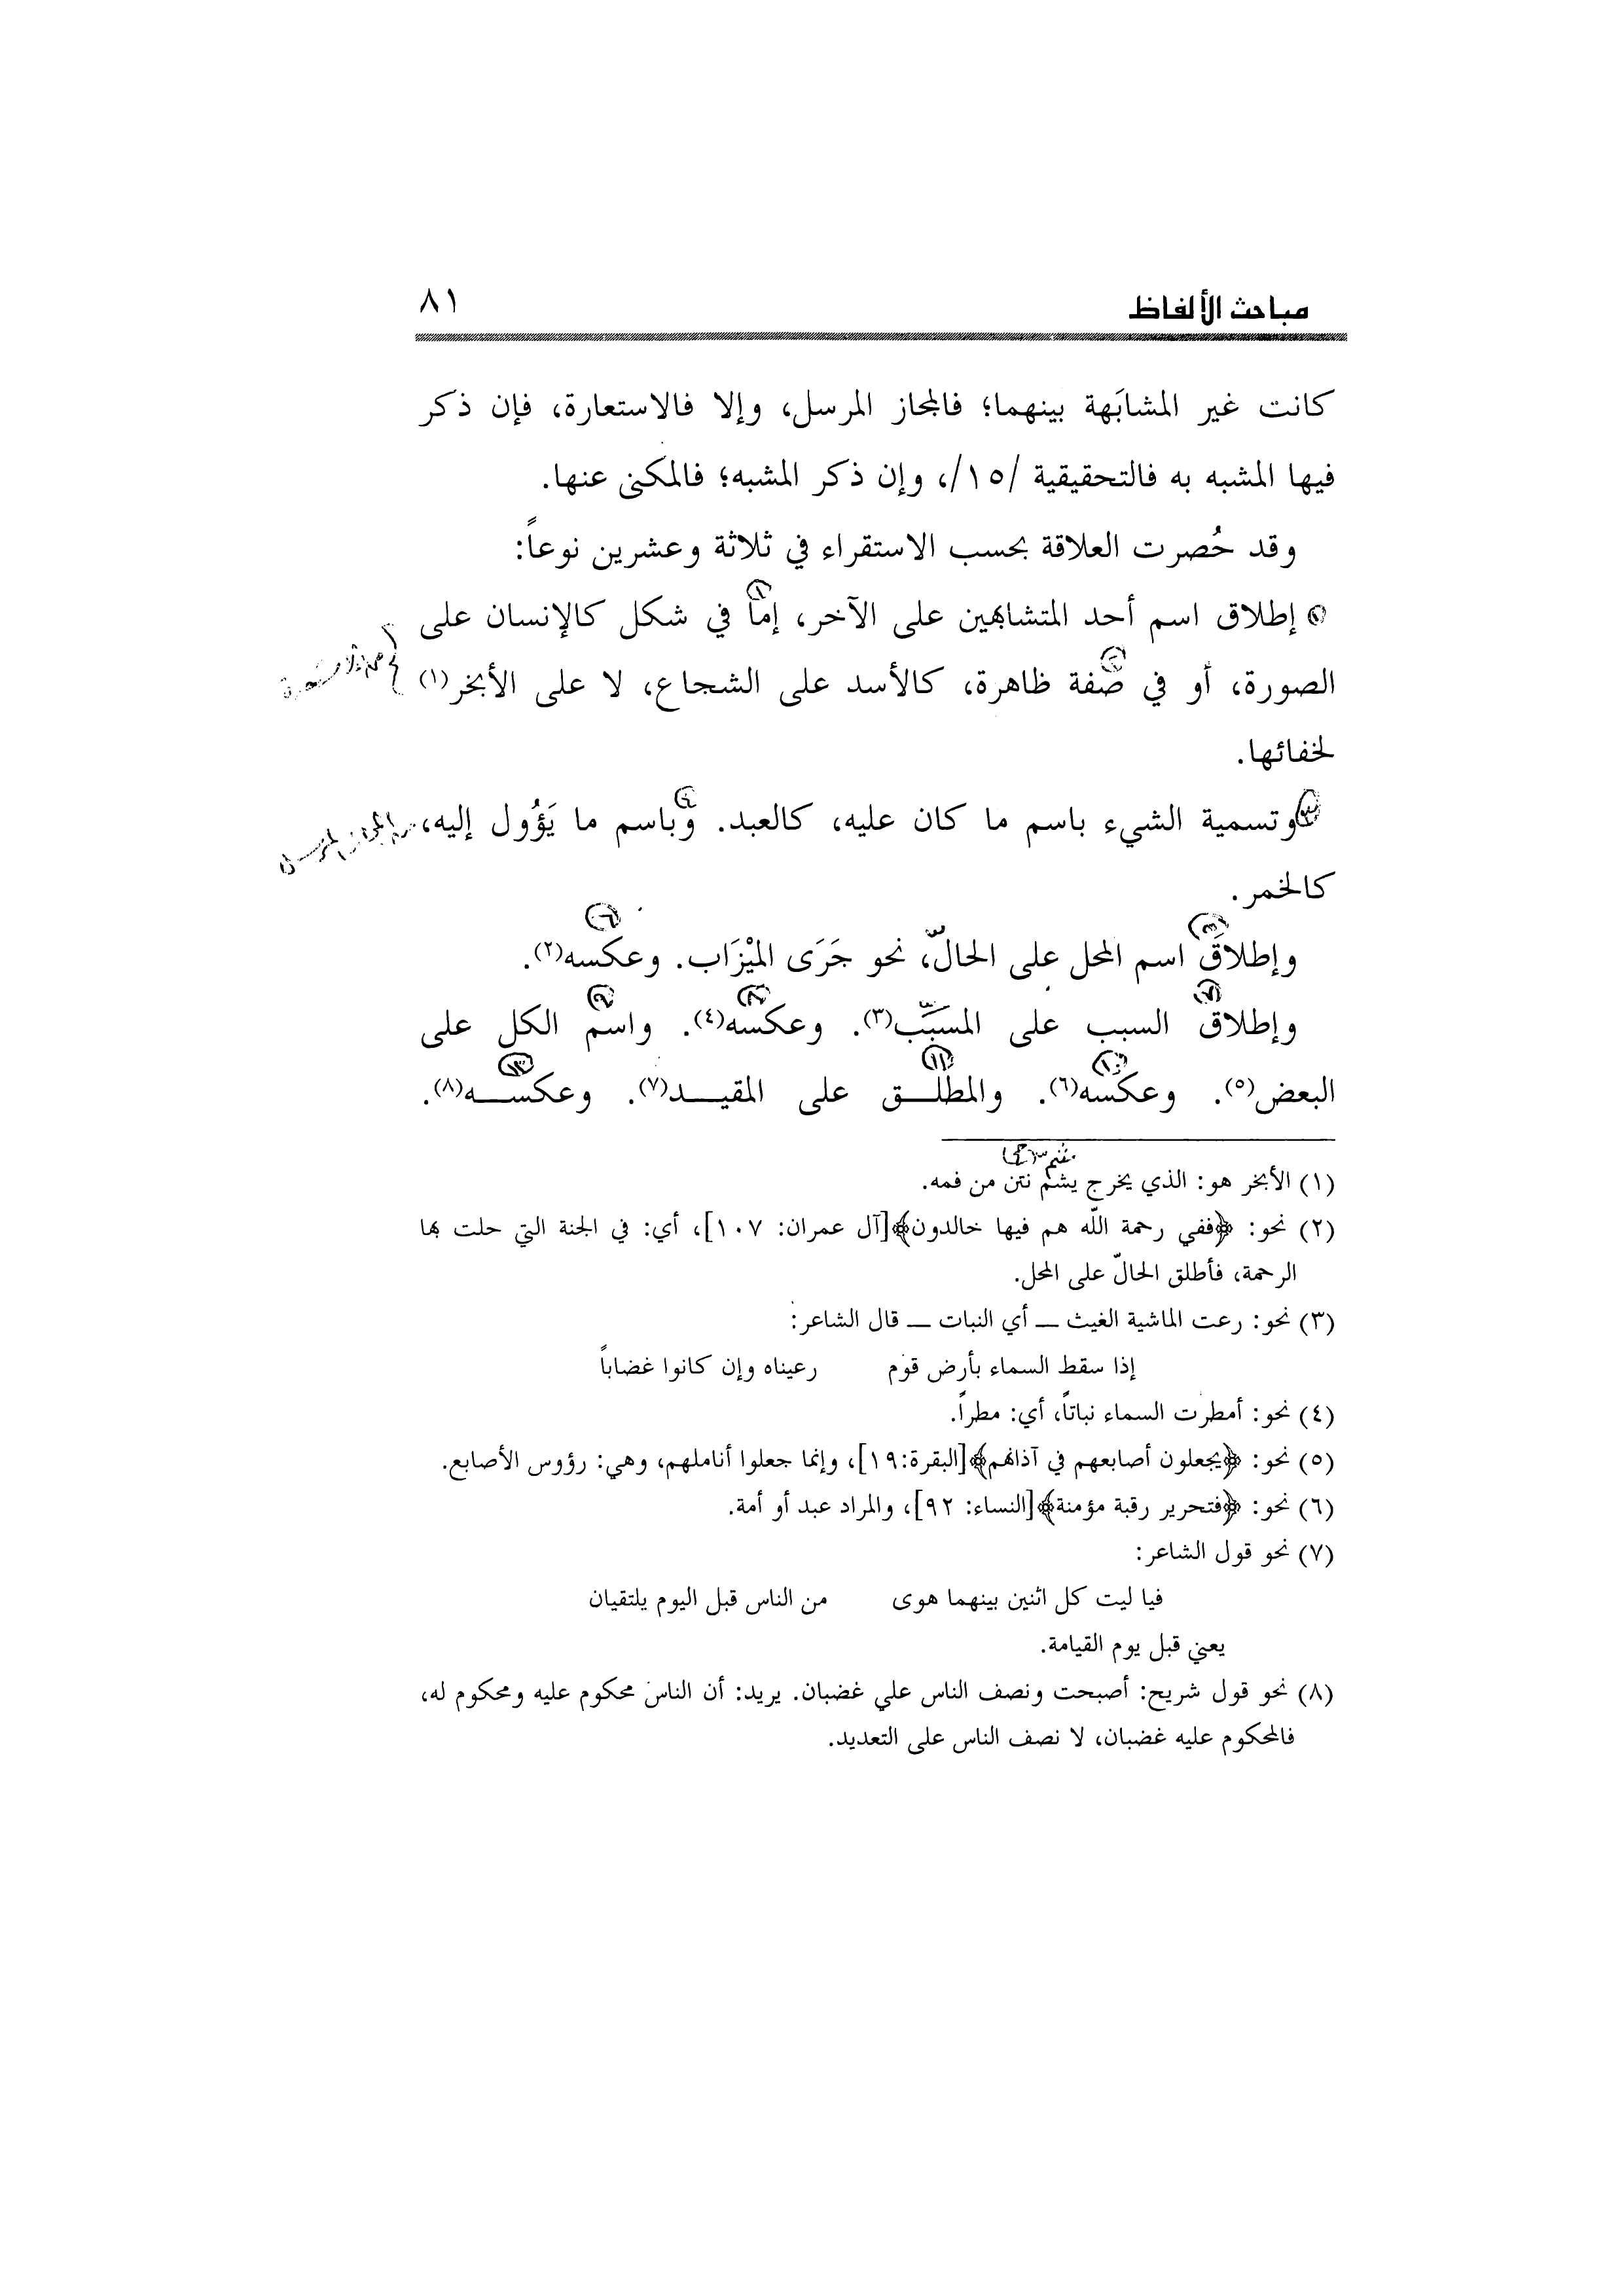 مباحث الألفاظ ٨١
كانت غير المشابَهة بينهما؛ فالمجاز المرسل، وإلا فالاستعارة، فإن ذكر
فيها المشبه به فالتحقيقية /١٥/، وإن ذكر المشبه؛ فالمكنى عنها.
وقد حُصرت العلاقة بحسب الاستقراء في ثلاثة وعشرين نوعاً:
إطلاق اسم أحد المتشابهين على الآخر، إما في شكل كالإنسان على
الصورة، أو في صفة ظاهرة، كالأسد على الشجاع، لا على الأبخر(١)
لخفائها.
وتسمية الشيء باسم ما كان عليه، كالعبد. وباسم ما يَؤُول إليه،
كالخمر.
وإطلاق اسم المحل على الحالّ، نحو جَرَى المِيْزَاب. وعكسه(٢).
وإطلاق السبب على المسبَّب(٣). وعكسه(٤). واسم الكل على
البعض(٥). وعكسه(٦). والمطلـــق على المقيـــد(٧). وعكســـه(٨).
(١) الأبخر هو: الذي يخرج يشم نتن من فمه.
(٢) نحو: ﴿ففي رحمة اللّه هم فيها خالدون﴾[آل عمران: ١٠٧]، أي: في الجنة التي حلت بها
الرحمة، فأطلق الحالّ على المحل.
(٣) نحو: رعت الماشية الغيث ــ أي النبات ــ قال الشاعر:
إذا سقط السماء بأرض قوم رعيناه وإن كانوا غضاباً
(٤) نحو: أمطرت السماء نباتاً، أي: مطراً.
(٥) نحو: ﴿يجعلون أصابعهم في آذانهم﴾[البقرة:١٩]، وإنما جعلوا أناملهم، وهي: رؤوس الأصابع.
(٦) نحو: ﴿فتحرير رقبة مؤمنة﴾[النساء: ٩٢]، والمراد عبد أو أمة.
(٧) نحو قول الشاعر:
فيا ليت كل اثنين بينهما هوى من الناس قبل اليوم يلتقيان
يعني قبل يوم القيامة.
(٨) نحو قول شريح: أصبحت ونصف الناس علي غضبان. يريد: أن الناس محكوم عليه ومحكوم له،
فالمحكوم عليه غضبان، لا نصف الناس على التعديد.